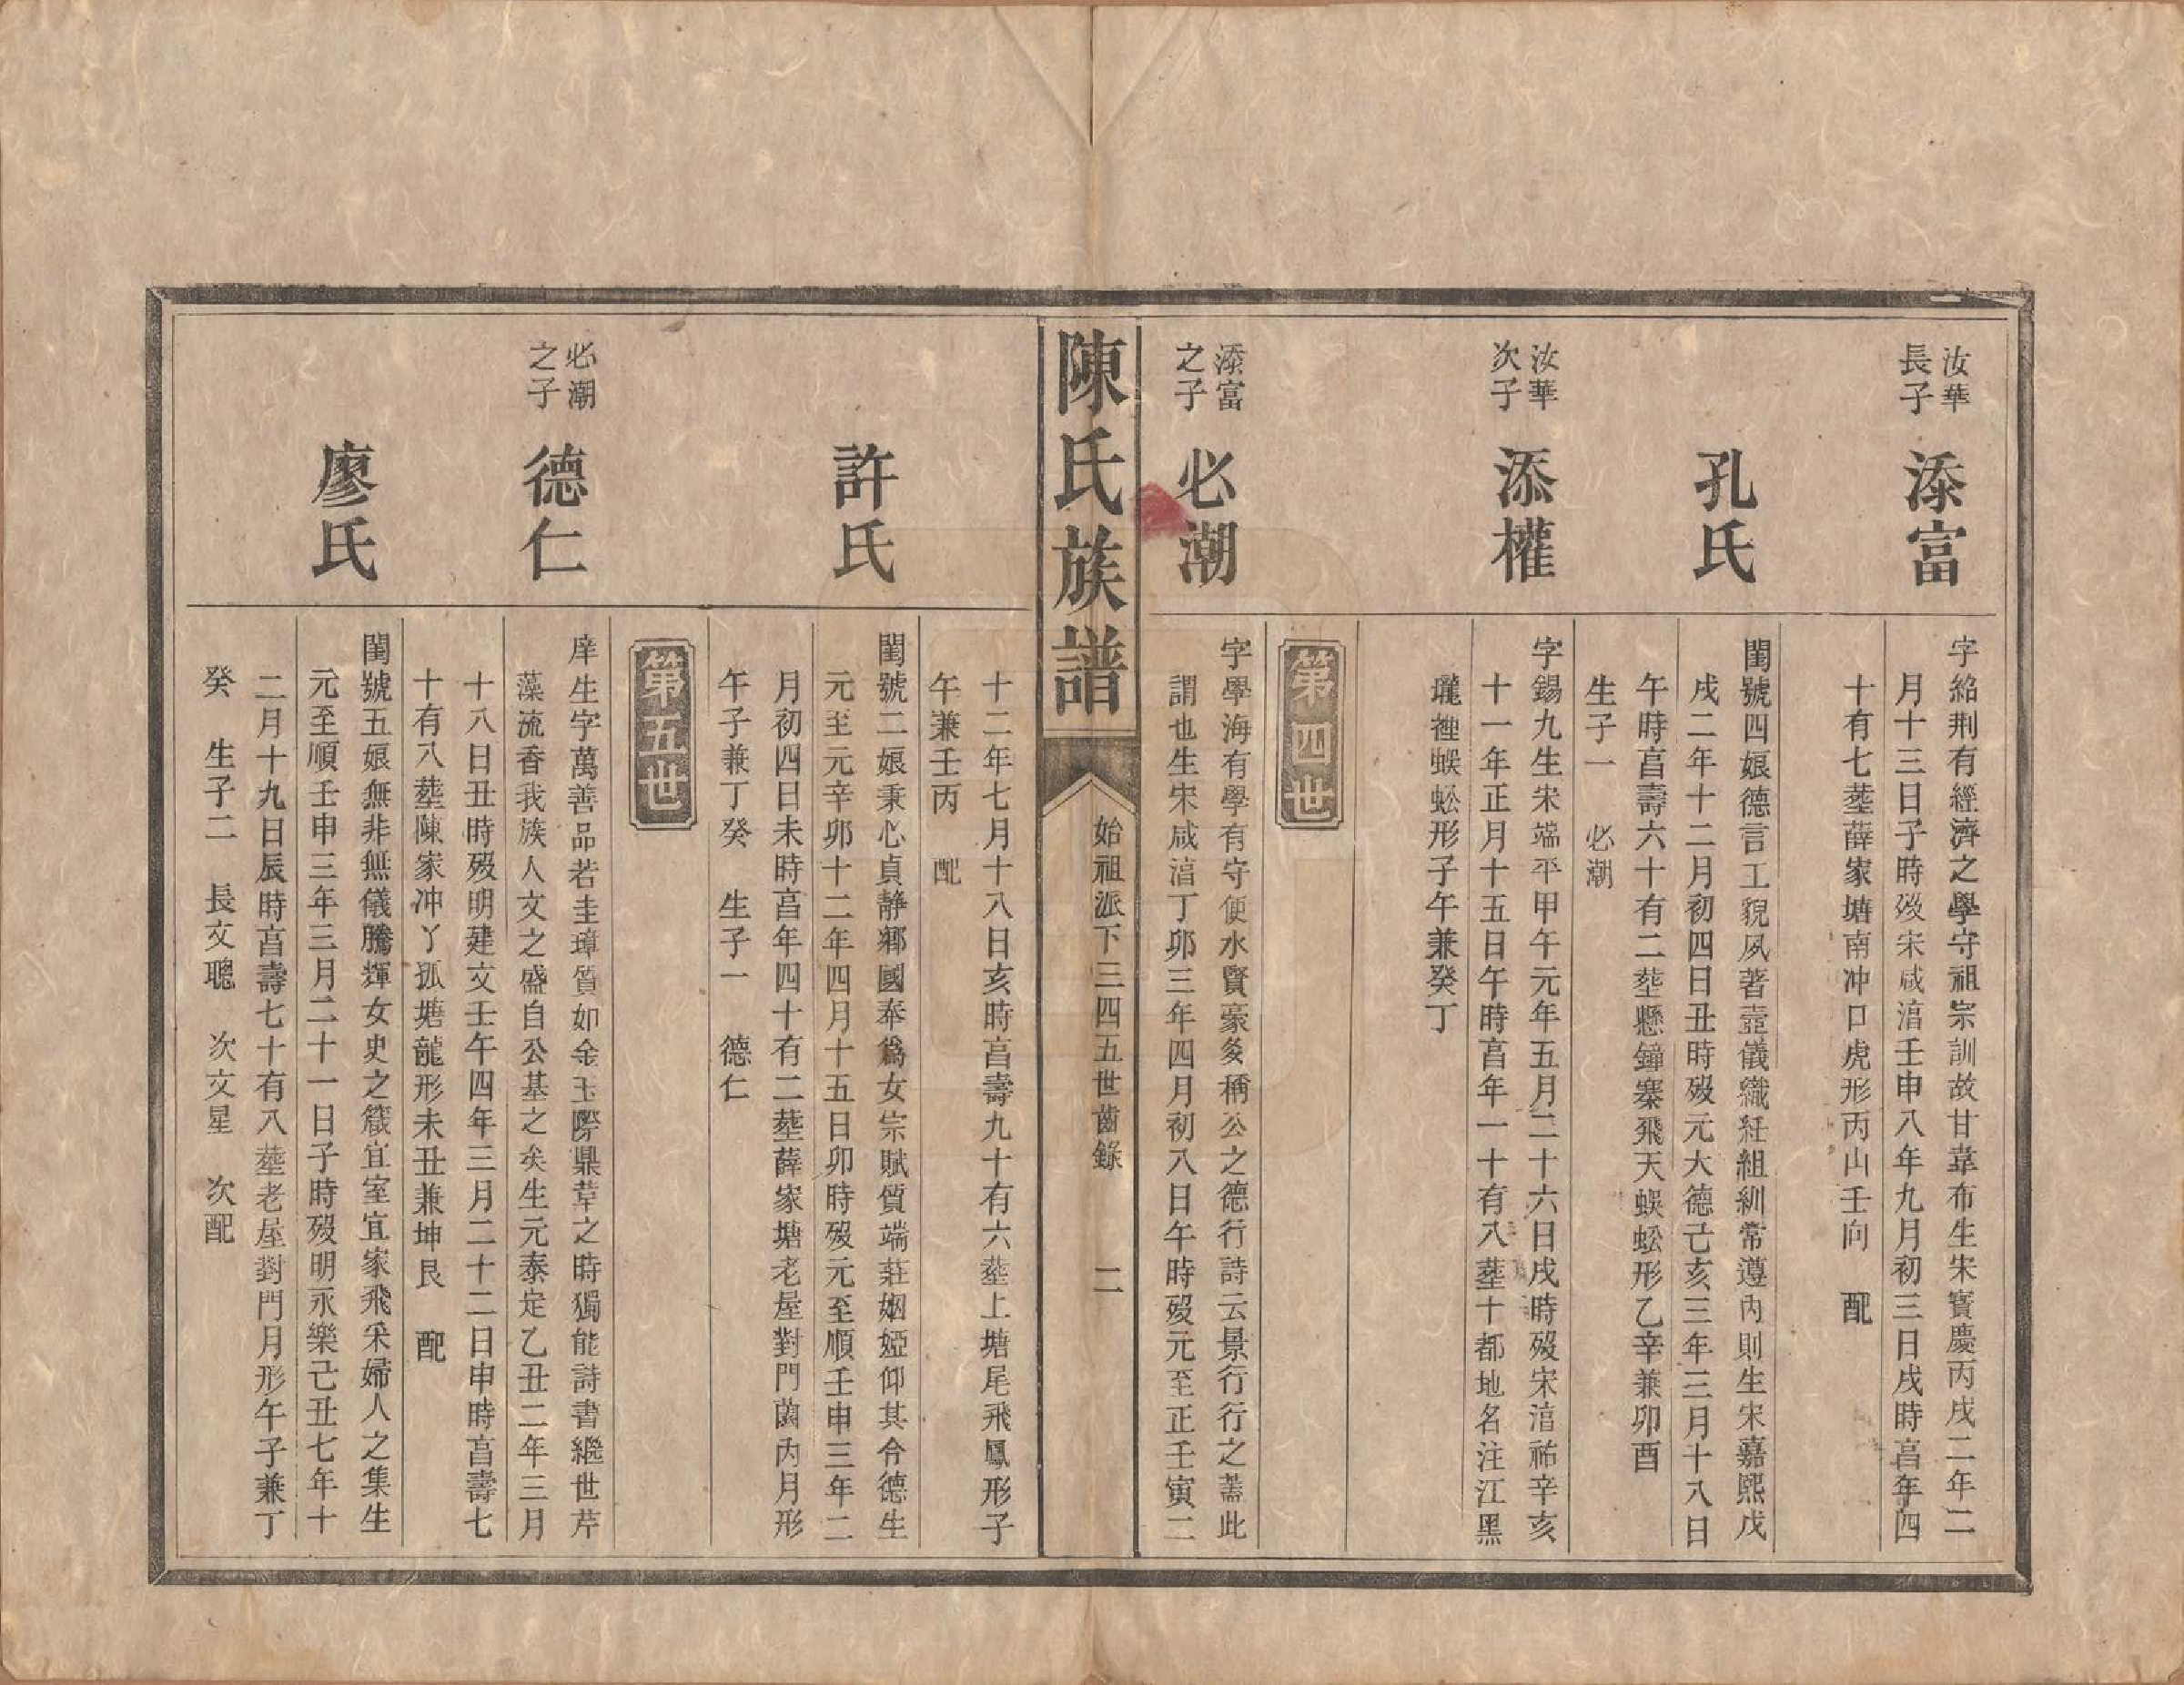 汝華
長子
添富
字紹荆有經濟之學守祖宗訓故甘韋布生宋寳慶丙戌二年二
月十三日子時歿宋咸湻壬申八年九月初三日戌時亯年四
十有七塟薛家塘南冲口虎形丙山壬向　配
孔氏
閨號四娘德言工貌夙著壼儀織紝組紃常遵內則生宋嘉熙戊
戌二年十二月初四日丑時歿元大德己亥三年三月十八日
午時亯壽六十有二塟懸鐘寨飛天蜈蚣形乙辛兼卯酉
生子一　必潮
汝華
次子
添權
字錫九生宋端平甲午元年五月二十六日戌時歿宋湻祐辛亥
十一年正月十五日午時亯年一十有八塟十都地名注江黑
壠裡蜈蚣形子午兼癸丁
第四世
添富
之子
必潮
字學海有學有守便水賢豪爭稱公之德行詩云景行行之蓋此
謂也生宋咸湻丁卯三年四月初八日午時歿元至正壬寅二
陳氏族譜
始祖派下三四五世齒錄
二
十二年七月十八日亥時亯壽九十有六塟上塘尾飛鳳形子
午兼壬丙　配
許氏
閨號二娘秉心貞靜鄉國奉爲女宗賦質端莊姻婭仰其令德生
元至元辛卯十二年四月十五日卯時歿元至順壬申三年二
月初四日未時亯年四十有二塟薛家塘老屋對門菌內月形
午子兼丁癸　生子一　德仁
第五世
必潮
之子
德仁
庠生字萬善品若圭璋質如金玉際鼎革之時獨能詩書繼世芹
藻流香我族人文之盛自公基之矣生元泰定乙丑二年三月
十八日丑時歿明建文壬午四年三月二十二日申時亯壽七
十有八塟陳家冲丫孤塘龍形未丑兼坤艮　配
廖氏
閨號五娘無非無儀騰輝女史之箴宜室宜家飛采婦人之集生
元至順壬申三年三月二十一日子時歿明永樂己丑七年十
二月十九日辰時亯壽七十有八塟老屋對門月形午子兼丁
癸　生子二　長文聰　次文星　次配